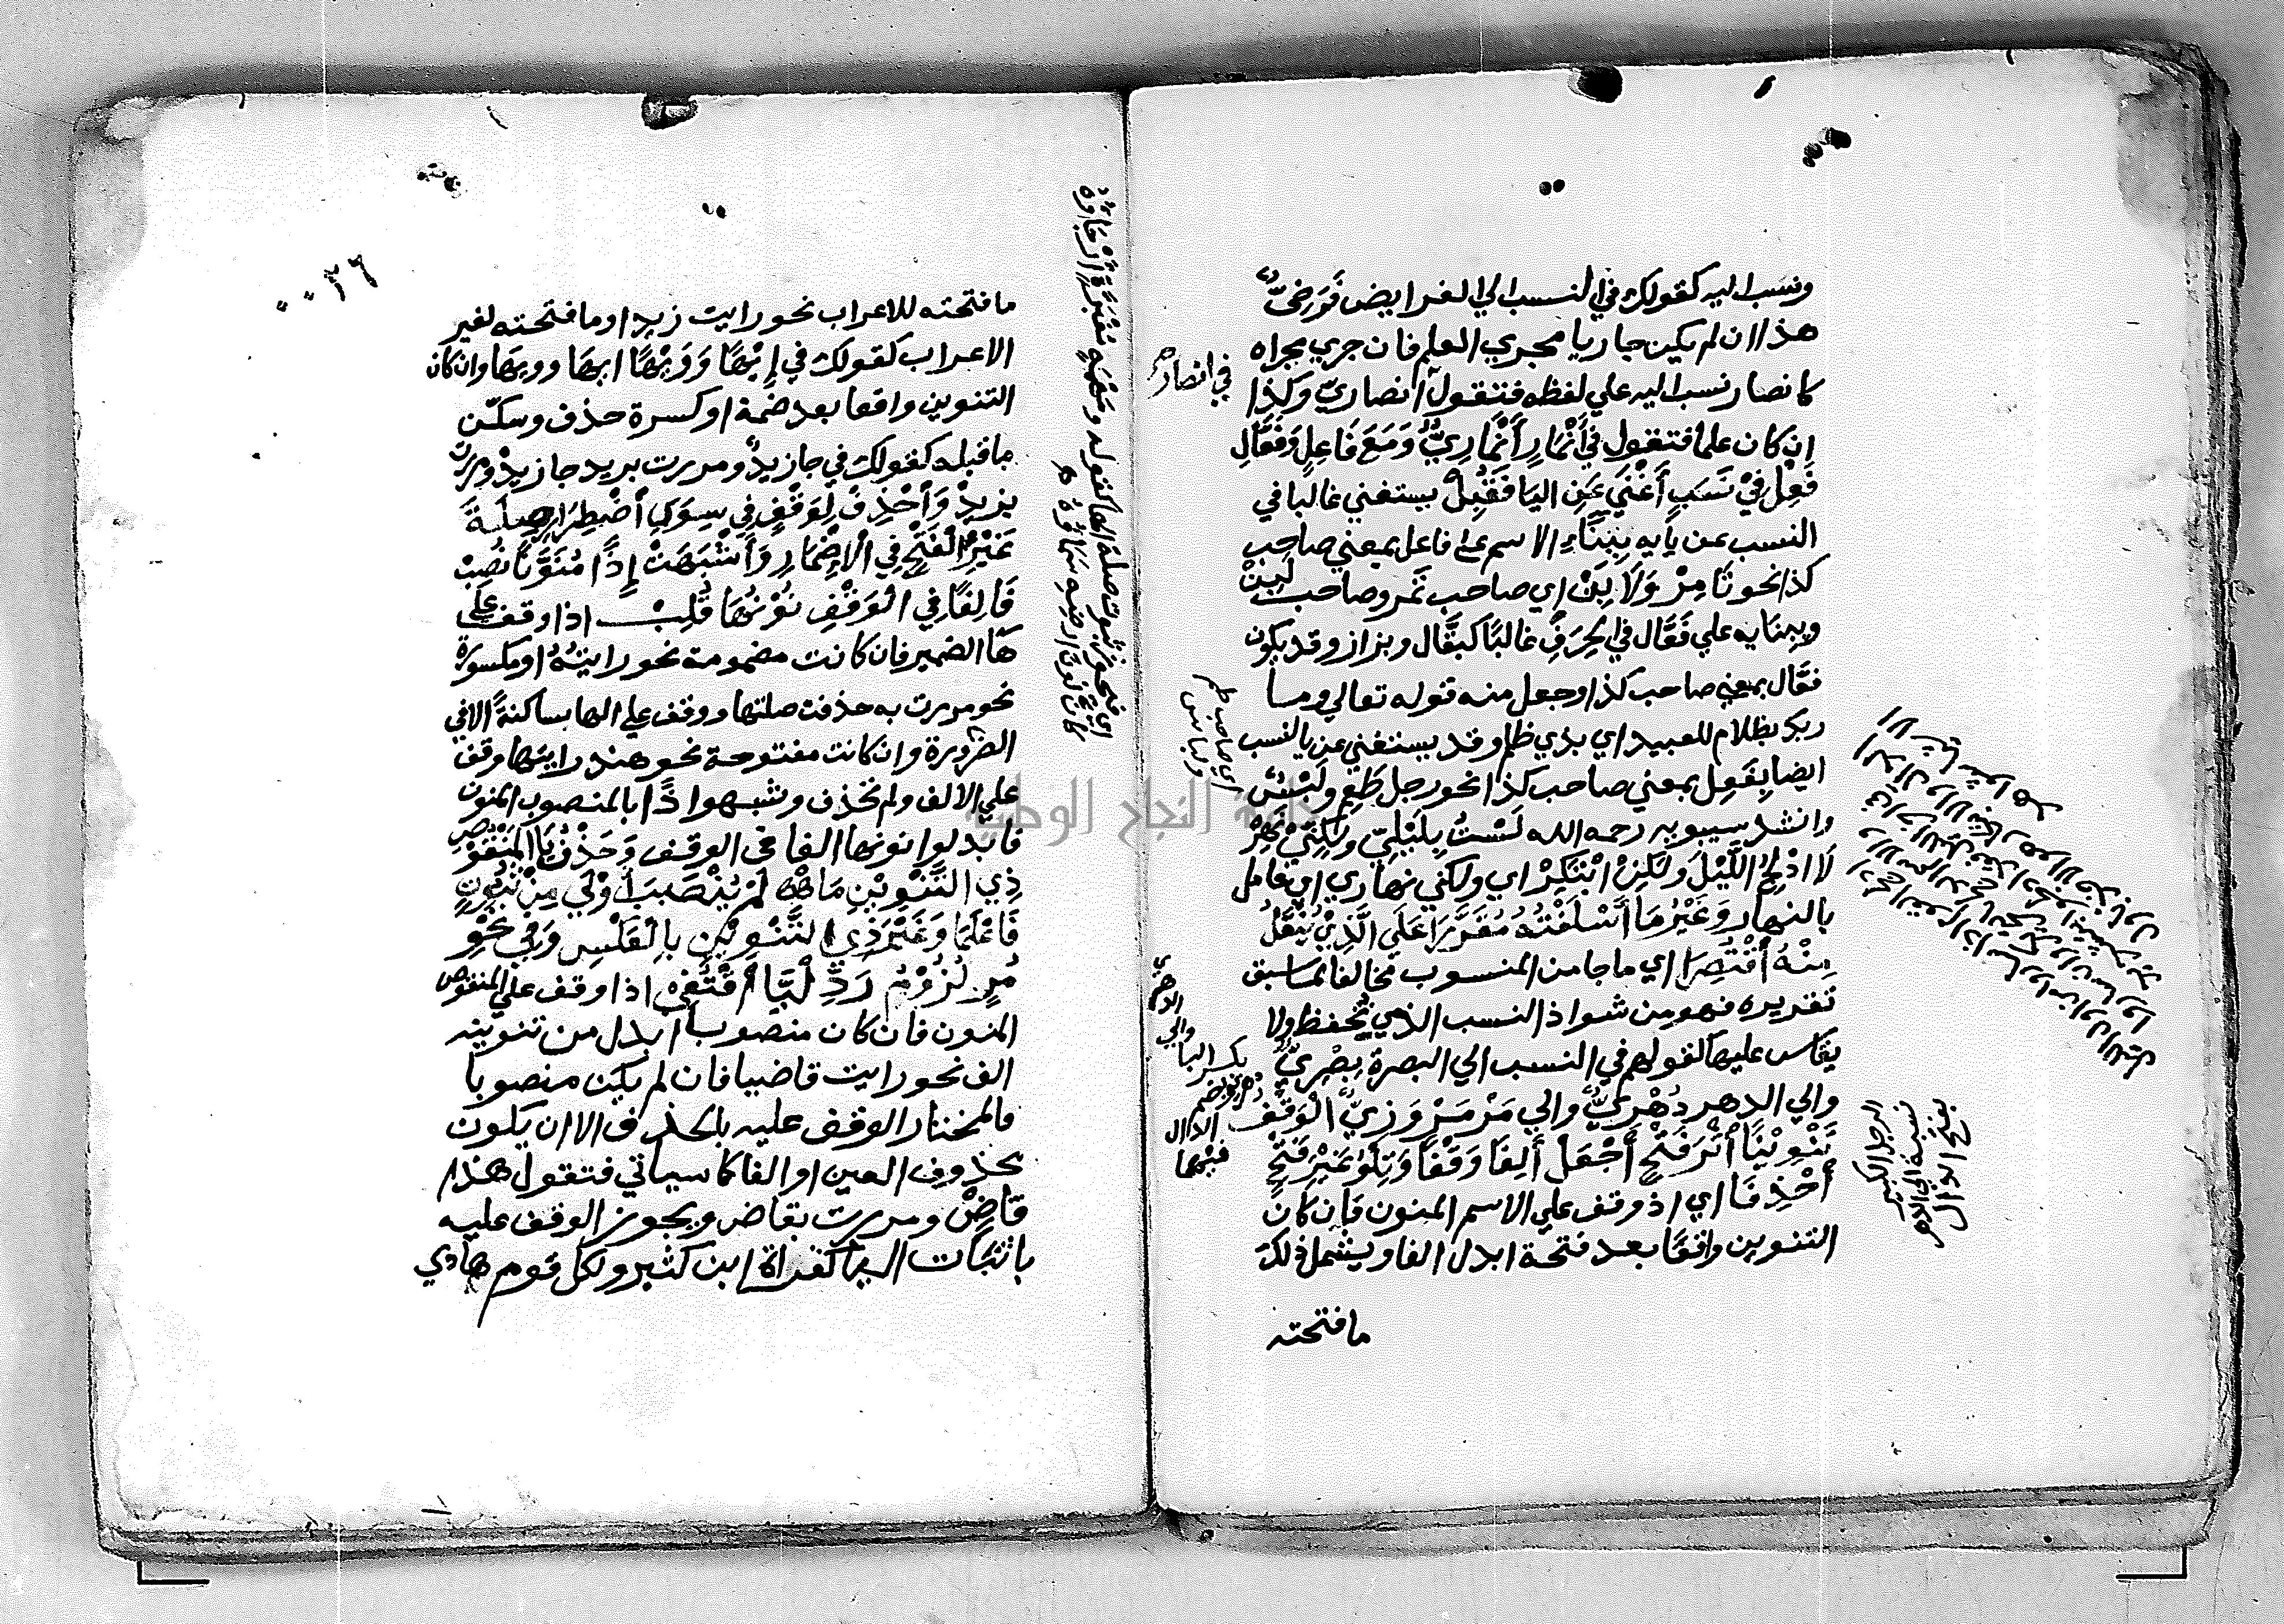 ونسب اليه كقولك في النسب الي الفرايض فَرَضِيٌّ
هذا ان لم يكن جاريا مجري العلم فان جري مجراه
كانصار نسب اليه علي لفظه فتقول انصاريّ وكذا
ان كان علما فتقول في أَنْمَارٍ أَنْمَارِيٌّ وَمَعَ فَاعِلٍ وَفَعَّالٍ
فَعِلْ فِيْ نَسَبٍ أَغْنَي عَنِ اليَا فَقُبِلْ يستغني غالبا في
النسب عن يايه بِبِنَاءِ الاسم علي فاعل بمعني صاحب
كذا نحو تَامِرْ وَلَابِنْ اي صاحب تمر وصاحب لَبِنْ
وببنايه علي فَعَّال في الحِرَفِ غالبًا كبقَّال وبزاز وقد يكون
فعَّال بمعني صاحب كذا وجعل منه قوله تعالي وما
ربك بظلام للعبيد اي بذي ظلم وقد يستغني عن يا النسب
ايضا بِفَعِل بمعني صاحب كذا نحو رجل طَعِم ولَبِسٌ
وانشد سيبويه رحمه الله لَسْتُ بِلَيْلِيّ ولكِنِّيْ نَهِرْ
لَا ادْلِجُ اللَّيْلَ وَلَكِنْ ابْتَكِرْ اي ولكني نهاري اي عامل
بالنهار وَغَيْرُ مَا أَسْلَفْتُهُ مُقَرَّرَا عَلَي الَّذِيْ يُنْقَلُ
مِنْهُ أُقْتُصِرَا اي ما جا من المنسوب مخالفا لما سبق
تقريره فهو من شواذ النسب الذي تُحفظ ولا
يقاس عليها كقولهم في النسب الي البصرة بِصْرِيٌّ
والي الدهر دُهْرِيٌّ والي مَرْو مَرْوَزِيٌّ الْوَقْف
تَنْوِيْنًا أَثَرَ فَتْحٍ أَجْعَلْ أَلِفَا وَقْفًا وَتِلْوَ غَيْرِ فَتْحٍ
أُحْذِفَا اي اذ وقف علي الاسم المنون فان كان
التنوين واقعًا بعد فتحة ابدل الفا ويشمل ذلك
ما فتحته
في انصار
اي صاحب طعم
ولباس
بكسر البا
والي
الدهري
الدال
فيهما
بفتح الدال
نسبة الي الدهر
الرجل الكبير
٠٠٢٦
ما فتحته للاعراب نحو رايت زيدا وما فتحته لغير
الاعراب كقولك في إِيْهًا وَوَيْهًا ايها وويها وان كان
التنوين واقعا بعد ضمة او كسرة حذف وسكّن
ما قبله كقولك في جا زيدٌ ومررت بزيد جا زيدْ ومررت
بزيدْ وَأحْذِفْ لِوَقْفٍ فِي سِوَي أضْطِرَارِ صِلَةَ
غَيْرِ الْفَتْحِ فِي الْإِضْمَارِ وَأشْبَهَتْ إِذًا مُنَوَّنًا نُصِبْ
فَالِفًا فِي الْوَقْفِ نُوْنُهَا قُلِبْ اذا وقف عَلَي
هَا الضمير فان كانت مضمومة نحو رايتهُ او مكسورة
نحو مررت به حذفت صلتها ووقف علي الها ساكنةً الا في
الضرورة وان كانت مفتوحة نحو هند رايتها وقف
علي الالف ولم تحذف وشبهوا ذًا بالمنصوب المنون
فابدلوا نونها الفا في الوقف وَحَذْفُ يَا الْمَنْقُوصِ
ذِي التَّنْوِيْنِ مَا لَمْ يُنْصَبَ أَوْلَي مِنْ ثُبُوتٍ
فَاعْلَمَا وَغَيْرُ ذِي التَّنْوِيْنِ بِالْعَكْسِ وَفِي نَحْوِ
مُرٍ لُزُوْمُ رَدِّ الْيَا أقْتُفِي اذا وقف علي المنقوص
المنون فان كان منصوبا أبدل من تنوينه
الف نحو رايت قاضيا فان لم يكن منصوبا
فالمختار الوقف عليه بالحذف الا ان يكون
محذوف العين او الفا كما سياتي فتقول هذا
قاضْ ومررت بقاض ويجوز الوقف عليه
باثبات اليا كقراة ابن كثير ولكل قوم هادي